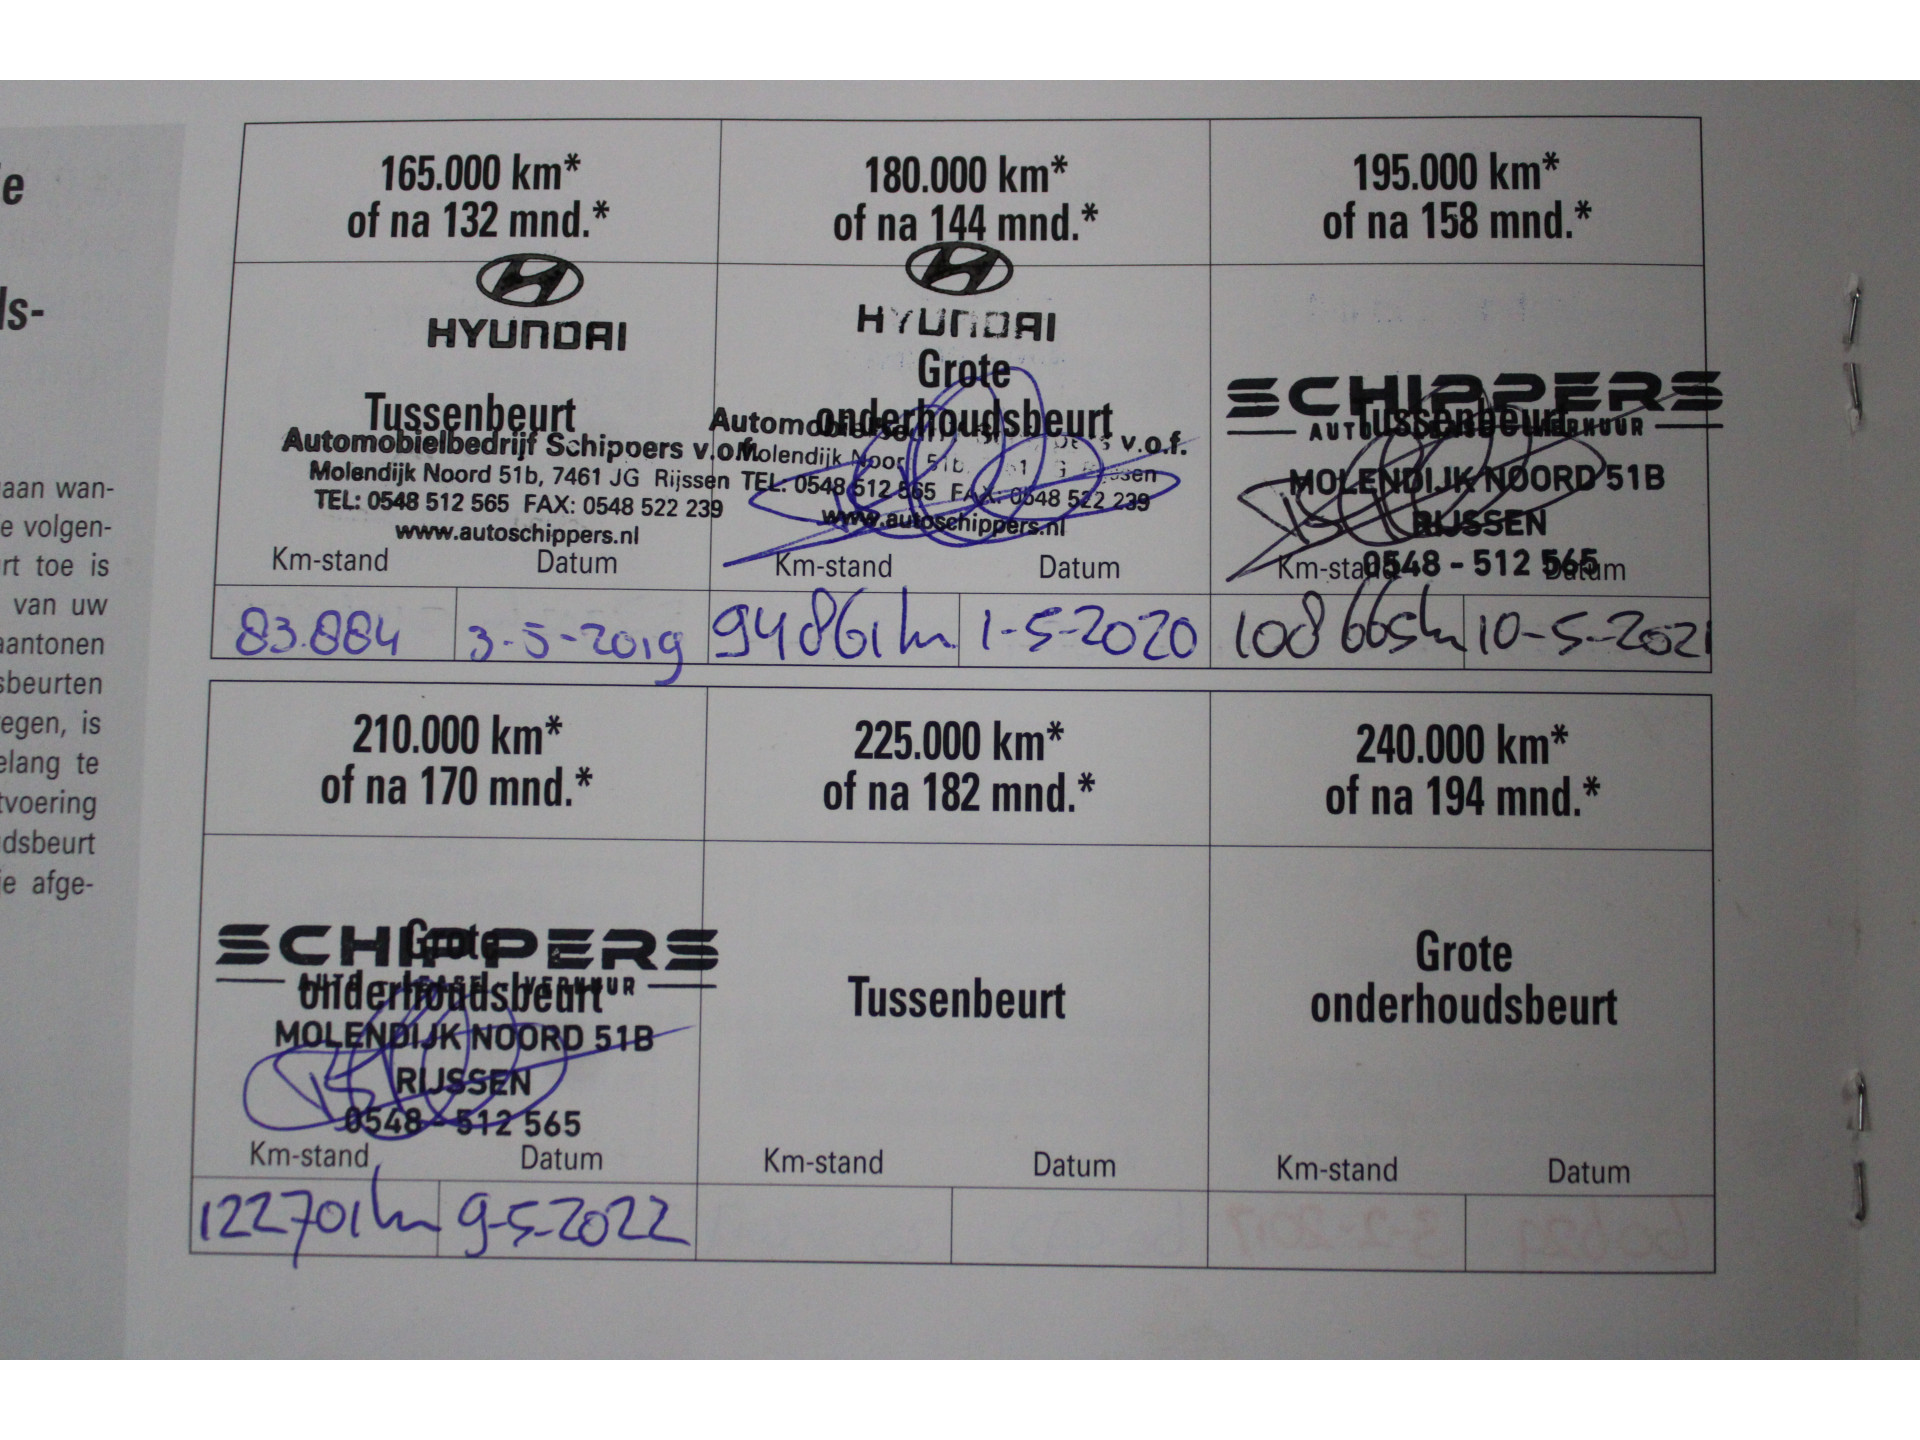 e
ls-
gaan wan-
e volgen-
rt toe is
van uw
aantonen
sbeurten
egen, is
elang te
tvoering
dsbeurt
ie afge-
165.000 km*
of na 132 mnd.*
HYUNDAI
Tussenbeurt
Automobielbedrijf Schippers v.o.f.
Molendijk Noord 51b, 7461 JG Rijssen
TEL: 0548 512 565 FAX: 0548 522 239
www.autoschippers.nl
Km-stand Datum
83.884 3-5-2019
180.000 km*
of na 144 mnd.*
HYUNDAI
Grote
onderhoudsbeurt
v.o.f.
Molendijk Noord 51b
TEL: 0548 512 565 FAX: 0548 522 239
www.autoschippers.nl
Km-stand Datum
94861km 1-5-2020
195.000 km*
of na 158 mnd.*
SCHIPPERS
Tussenbeurt
MOLENDIJK NOORD 51B
RIJSSEN
0548 - 512 565
Km-stand Datum
108665km 10-5-2021
210.000 km*
of na 170 mnd.*
SCHIPPERS
Grote
onderhoudsbeurt
MOLENDIJK NOORD 51B
RIJSSEN
0548 - 512 565
Km-stand Datum
122701km 9-5-2022
225.000 km*
of na 182 mnd.*
Tussenbeurt
Km-stand Datum
240.000 km*
of na 194 mnd.*
Grote
onderhoudsbeurt
Km-stand Datum